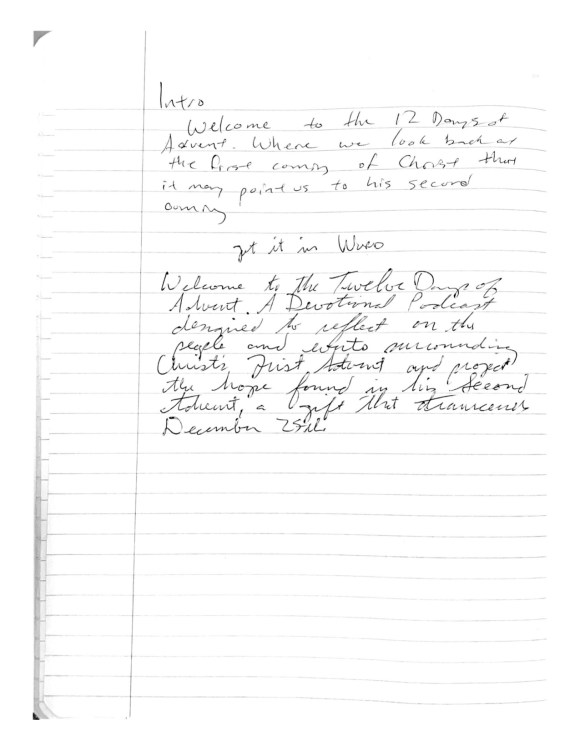 Intro
Welcome to the 12 Days of
Advent. Where we look back at
the first coming of Christ that
it may point us to his second
coming
put it in
Welcome to the Twelve Days of
Advent. A Devotional Podcast
designed to reflect on the
people and events surrounding
Christ's First Advent and project
the hope found in his Second
Advent, a gift that transcends
December 25th.